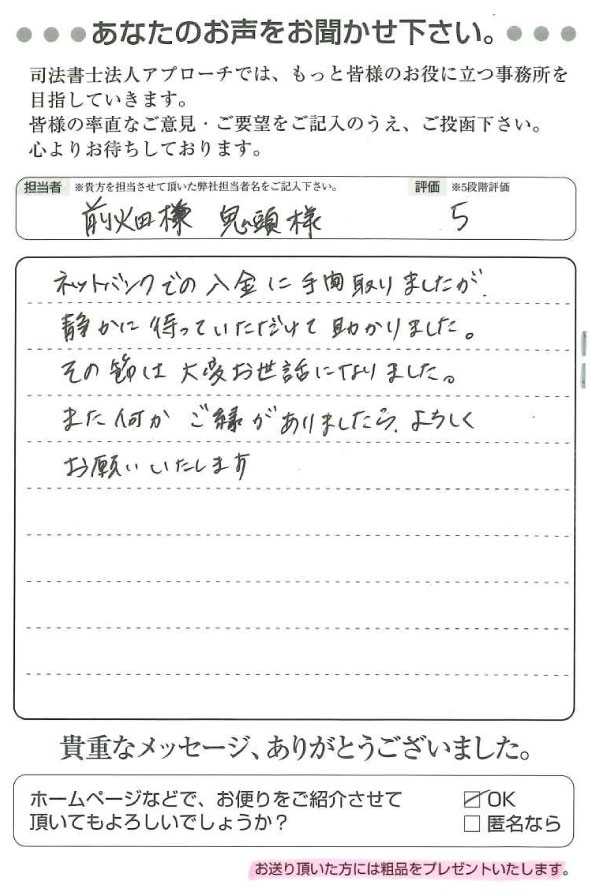 あなたのお声をお聞かせ下さい。
司法書士法人アプローチでは、もっと皆様のお役に立つ事務所を
目指していきます。
皆様の率直なご意見・ご要望をご記入のうえ、ご投函下さい。
心よりお待ちしております。
担当者 ※貴方を担当させて頂いた弊社担当者名をご記入下さい。 評価 ※5段階評価
前畑様 鬼頭様 5
ネットバンクでの入金に手間取りましたが、
静かに待っていただけて助かりました。
その節は大変お世話になりました。
また何かご縁がありましたら、よろしく
お願いいたします
貴重なメッセージ、ありがとうございました。
ホームページなどで、お便りをご紹介させて
頂いてもよろしいでしょうか？
OK
匿名なら
お送り頂いた方には粗品をプレゼントいたします。